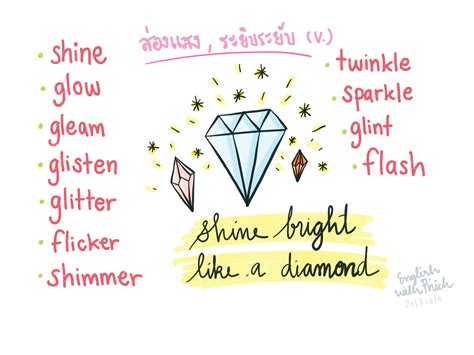 ส่องแสง , ระยิบระยับ (v.)
• shine
• glow
• gleam
• glisten
• glitter
• flicker
• shimmer
• twinkle
• sparkle
• glint
• flash
shine bright
like a diamond
English
with Prich